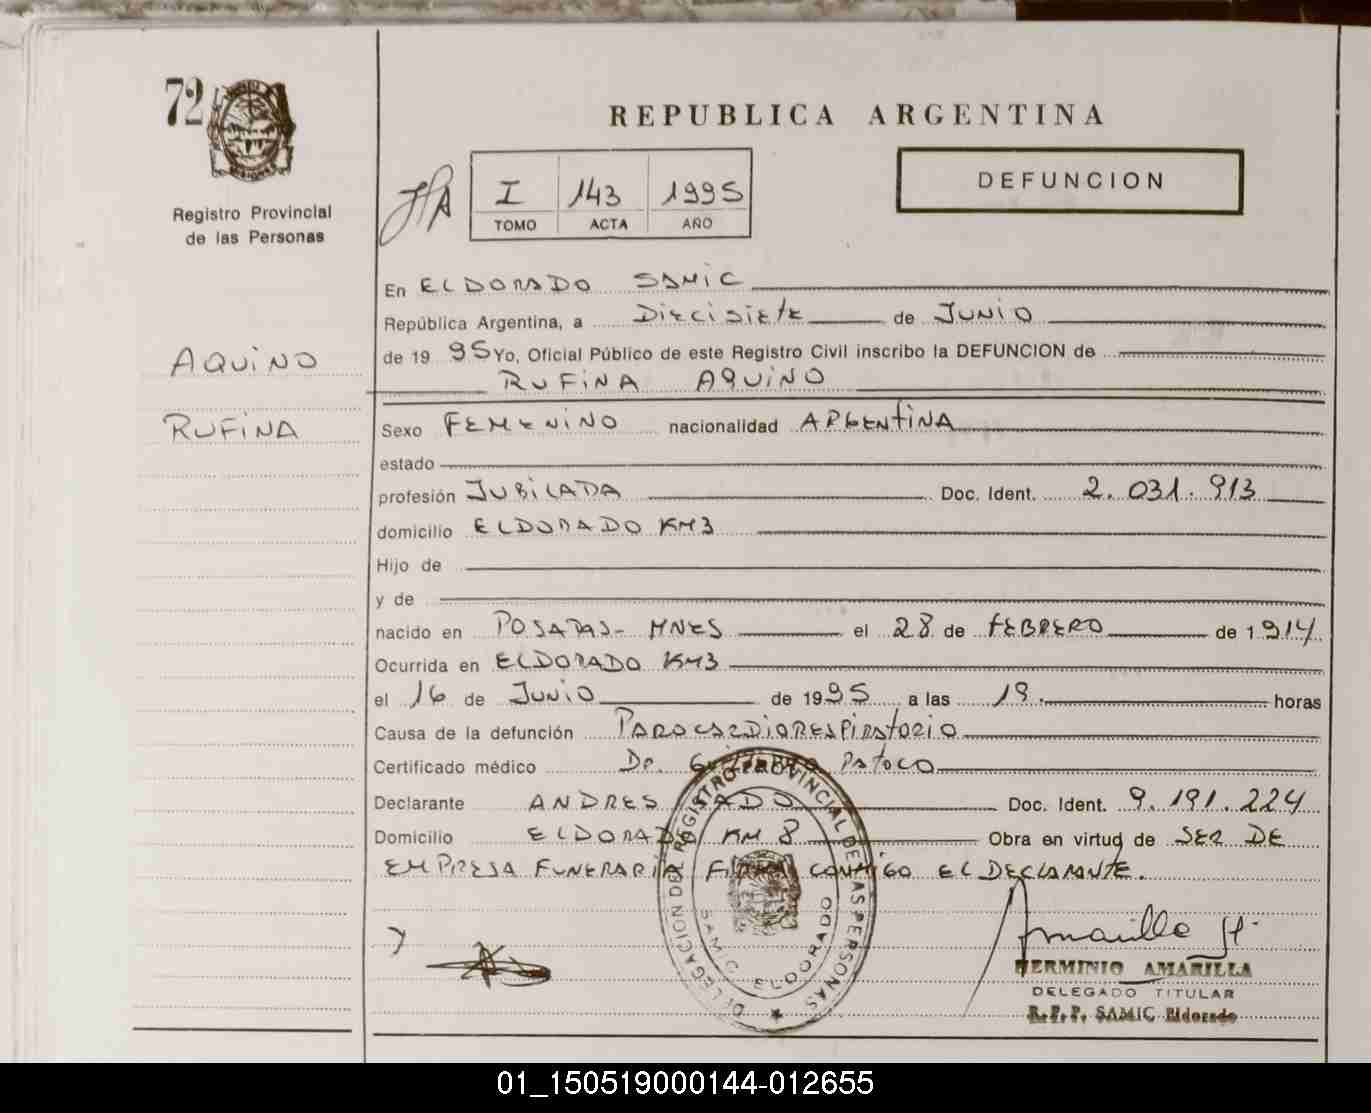 72
MISIONES
Registro Provincial
de las Personas
AQUINO
RUFINA
REPUBLICA ARGENTINA
I 143 1995
TOMO ACTA AÑO
DEFUNCION
En ELDORADO SAMIC
República Argentina, a DIECISIETE de JUNIO
de 1995 Yo, Oficial Público de este Registro Civil inscribo la DEFUNCION de
RUFINA AQUINO
Sexo FEMENINO nacionalidad ARGENTINA
estado
profesión JUBILADA Doc. Ident. 2.031.913
domicilio ELDORADO KM3
Hijo de
y de
nacido en POSADAS- MNES el 28 de FEBRERO de 1914
Ocurrida en ELDORADO KM3
el 16 de JUNIO de 1995 a las 19. horas
Causa de la defunción PAROCARDIORESPIRATORIO
Certificado médico Dr. PATOCO
Declarante ANDRES Doc. Ident. 9.191.224
Domicilio ELDORADO KM 8 Obra en virtud de SER DE
EMPRESA FUNERARIA FIRMA CONMIGO EL DECLARANTE.
DELEGACION DEL REGISTRO PROVINCIAL DE LAS PERSONAS
SAMIC ELDORADO
Amarilla H.
HERMINIO AMARILLA
DELEGADO TITULAR
R.P.P. SAMIC Eldorado
01_150519000144-012655